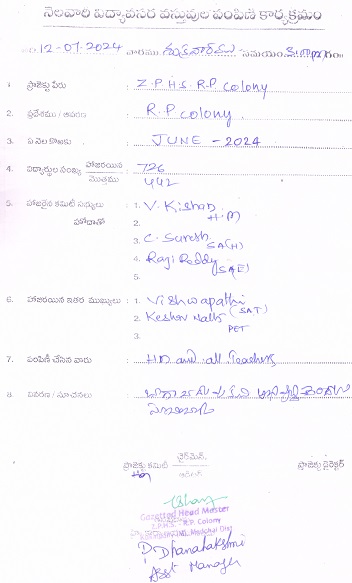 నెలవారి విద్యావసర వస్తువుల పంపిణీ కార్యక్రమం
12-07-2024 వారము శుక్రవారము సమయం
1. ప్రాజెక్టు పేరు : Z.P.H.S. R.P Colony
2. ప్రదేశము / వివరణ : R.P colony.
3. ఏ నెల కొరకు : JUNE - 2024
4. విద్యార్థుల సంఖ్య హాజరయిన : 726
మొత్తము 442
5. హాజరైన కమిటీ సభ్యులు : 1. V. Kishan H.M
హోదాతో 2.
3. C. Suresh SA(H)
4. Raji Reddy SA(E)
5.
6. హాజరయిన ఇతర ముఖ్యులు : 1. Vishwapathi (SAT)
2. Keshav Nath PET
3.
7. పంపిణీ చేసిన వారు : HM and all Teachers
8. వివరణ / సూచనలు :
ఛైర్మెన్,
ప్రాజెక్టు కమిటీ ప్రాజెక్టు డైరెక్టర్
Gazetted Head Master
Z.P.H.S. R.P. Colony
Medchal Dist
D. Dhanalakshmi
Asst Manager